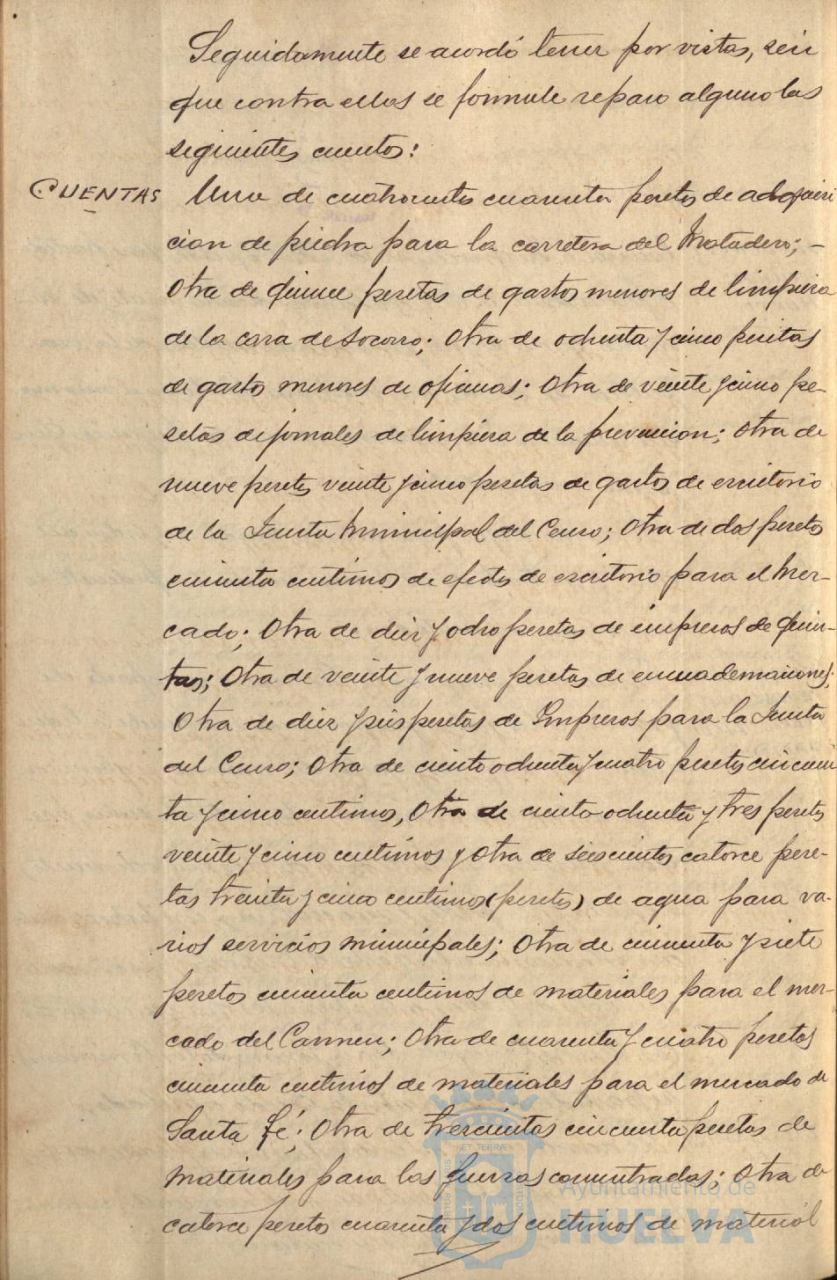 Seguidamente se acordó tener por vistas, sin
que contra ellas se formule reparo alguno las
siguientes cuentas:
CUENTAS Una de cuatrocientas cuarenta pesetas de adquisi
cion de piedra para la carretera del Matadero; –
Otra de quince pesetas de gastos menores de limpieza
de la casa de Socorro; Otra de ochenta y cinco pesetas
de gastos menores de oficinas; Otra de veinte y cinco pe-
setas de jornales de limpieza de la prevencion; Otra de
nueve pesetas veinte y cinco pesetas de gastos de escritorio
de la Junta Municipal del Censo; Otra de dos pesetas
cincuenta centimos de efectos de escritorio para el Mer-
cado; Otra de diez y ocho pesetas de impresos de Quin-
tas; Otra de veinte y nueve pesetas de encuadernaciones;
Otra de diez y seis pesetas de Impresos para la Junta
del Censo; Otra de ciento ochenta y cuatro pesetas cincuen
ta y cinco centimos, Otra de ciento ochenta y tres pesetas
veinte y cinco centimos y Otra de seiscientos catorce pese-
tas treinta y cinco centimos (pesetas) de agua para va-
rios servicios municipales; Otra de cincuenta y siete
pesetas cincuenta centimos de materiales para el mer-
cado del Carmen; Otra de cuarenta y cuatro pesetas
cincuenta centimos de materiales para el mercado de
Santa Fé; Otra de trescientas cincuenta pesetas de
materiales para las fuerzas concentradas; Otra de
catorce pesetas cuarenta y dos centimos de material
Ayuntamiento de
HUELVA